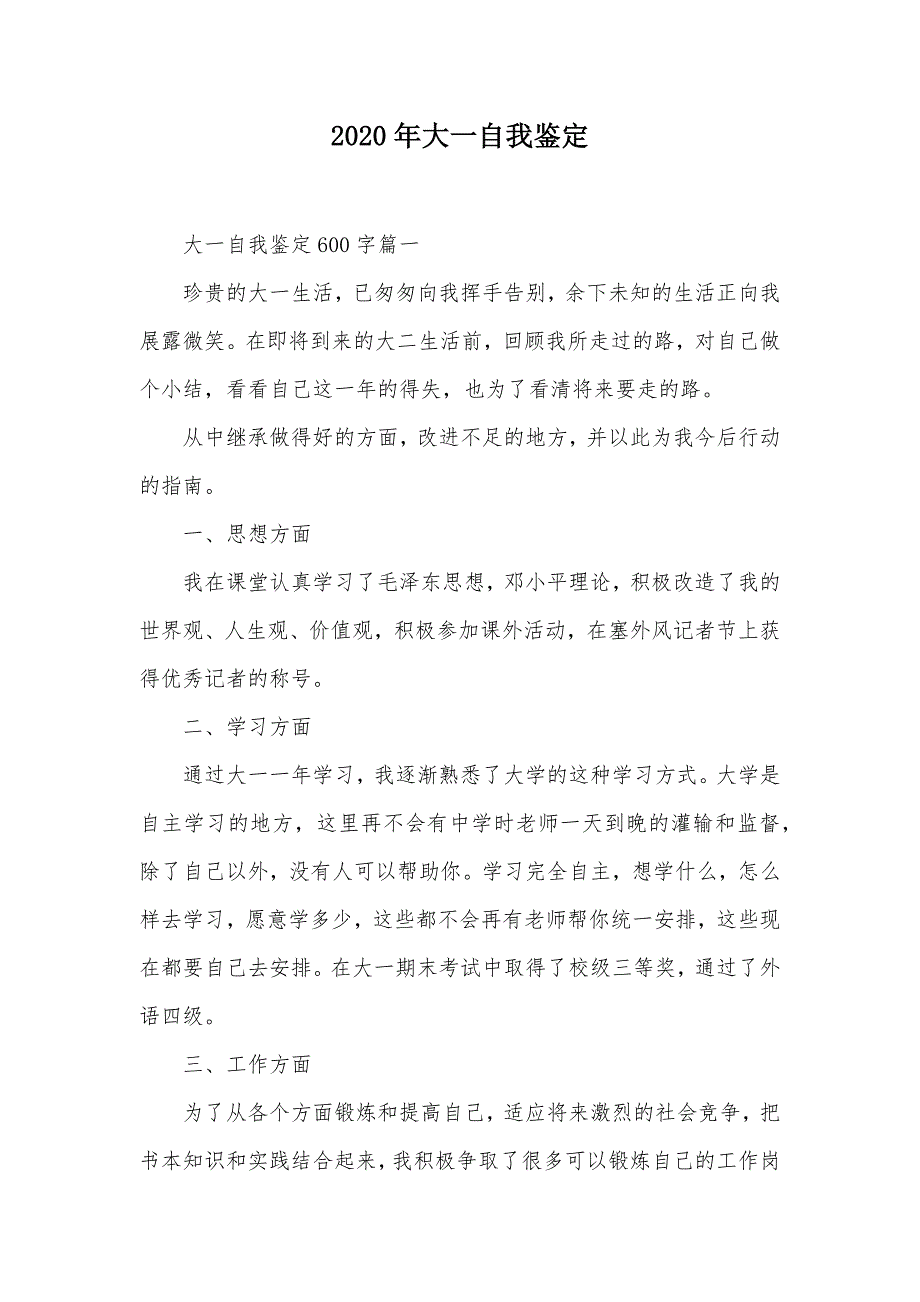 2020年大一自我鉴定
大一自我鉴定600字篇一
珍贵的大一生活，已匆匆向我挥手告别，余下未知的生活正向我
展露微笑。在即将到来的大二生活前，回顾我所走过的路，对自己做
个小结，看看自己这一年的得失，也为了看清将来要走的路。
从中继承做得好的方面，改进不足的地方，并以此为我今后行动
的指南。
一、思想方面
我在课堂认真学习了毛泽东思想，邓小平理论，积极改造了我的
世界观、人生观、价值观，积极参加课外活动，在塞外风记者节上获
得优秀记者的称号。
二、学习方面
通过大一一年学习，我逐渐熟悉了大学的这种学习方式。大学是
自主学习的地方，这里再不会有中学时老师一天到晚的灌输和监督，
除了自己以外，没有人可以帮助你。学习完全自主，想学什么，怎么
样去学习，愿意学多少，这些都不会再有老师帮你统一安排，这些现
在都要自己去安排。在大一期末考试中取得了校级三等奖，通过了外
语四级。
三、工作方面
为了从各个方面锻炼和提高自己，适应将来激烈的社会竞争，把
书本知识和实践结合起来，我积极争取了很多可以锻炼自己的工作岗